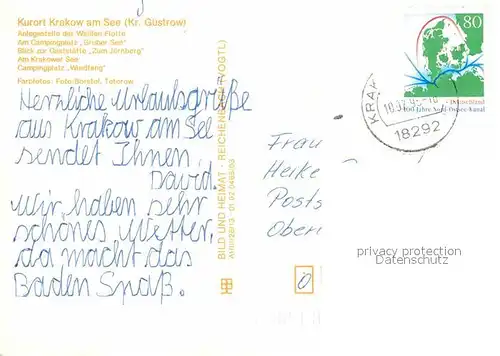 Kurort Krakow am See (Kr. Güstrow)
Anlegestelle der Weißen Flotte
Am Campingplatz „Großer See“
Blick zur Gaststätte „Zum Jörnberg“
Am Krakower See
Campingplatz „Windfang“
Farbfotos: Foto-Borstel, Teterow
Herzliche Urlaubsgrüße
aus Krakow am See
sendet Ihnen
David.
Wir haben sehr
schönes Wetter,
da macht das
Baden Spaß.
BILD UND HEIMAT · REICHENBACH (VOGTL)
80
Deutschland
100 Jahre Nord-Ostsee-Kanal
KRAK
18292
Frau
Heike
Posts
Ober
privacy protection
Datenschutz